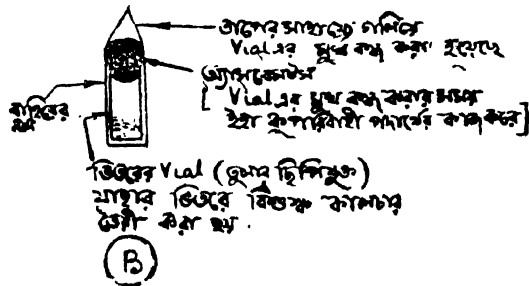 তাপের সাহায্যে গলিয়ে
Vial এর মুখ বন্ধ করা হয়েছে
অ্যাসবেসটস
[Vial এর মুখ বন্ধ করার সময়
ইহা কুপরিবাহী পদার্থের কাজ করে]
বাহিরের
ভিতরের Vial (তুলার ছিপিযুক্ত)
যাহার ভিতরে বিশুষ্ক কালচার
তৈরী করা হয়.
B